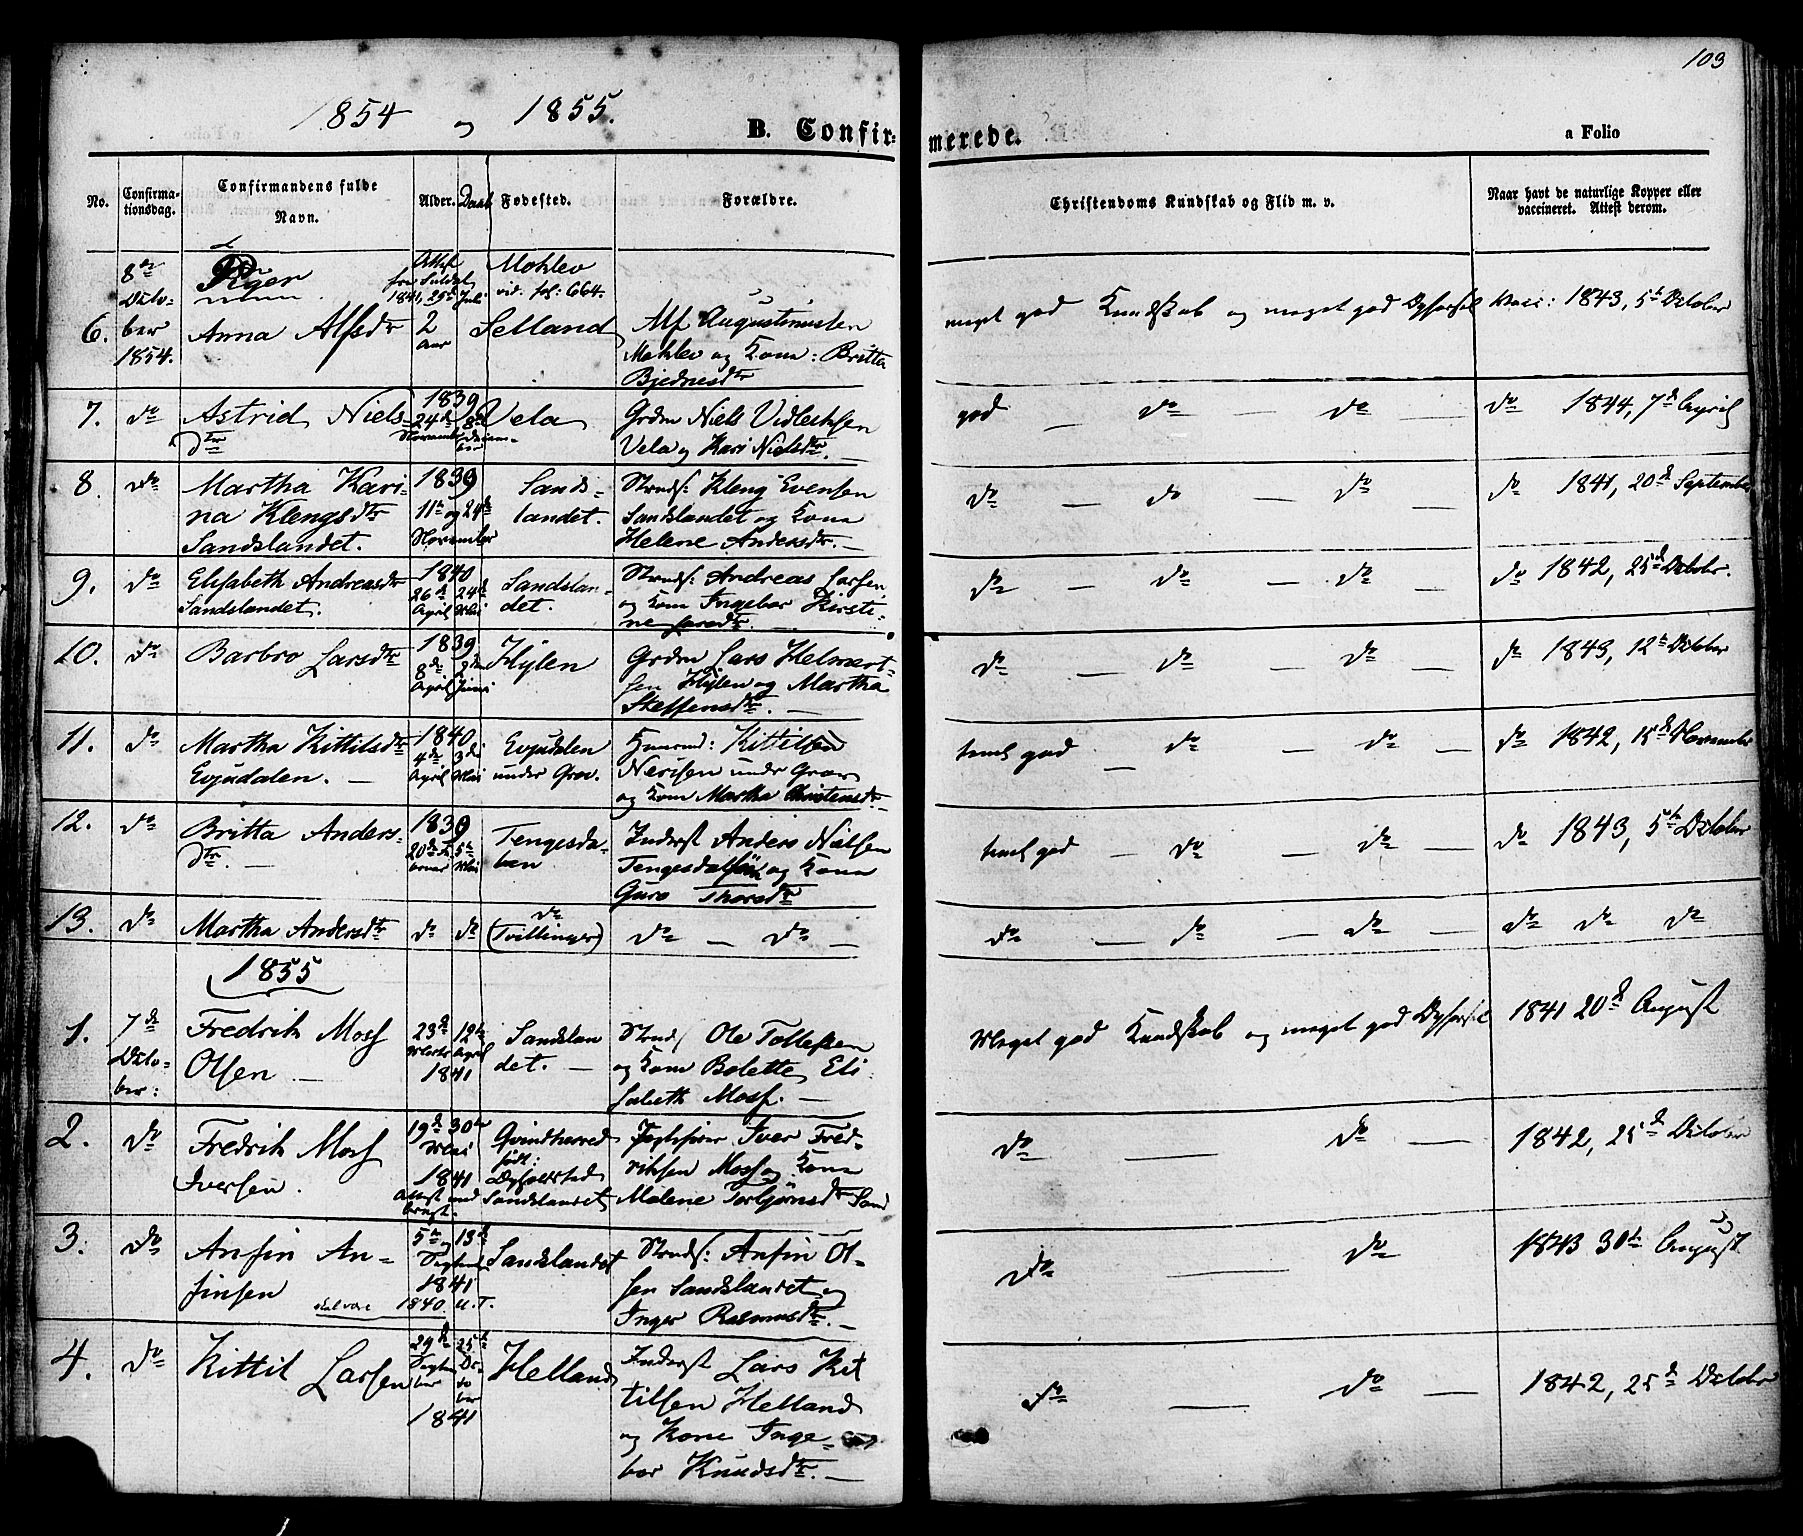 103
1854 og 1855.
B. Confir-
merede.
a Folio
No.
Confirma-
tionsdag.
Confirmandens fulde
Navn.
Alder.
Daab
Fødested.
Forældre.
Christendoms Kundskab og Flid m. v.
Naar havt de naturlige Kopper eller
vaccineret. Attest derom.
Piger
6.
8de
Octo-
ber
1854.
Anna Alfsdtr
Attest
fra Suldal
1841, 25de Juli
2
Aar
Mohlev
vid. fol: 664.
Selland
Alf Augustinusen
Mohlev og Kone: Britta
Bjednesdtr
meget god Kundskab og meget god Opførsel
Vacc: 1843, 5te October
7.
do
Astrid Niels-
dtr
1839
24de 8de
Novemb. Decem-
ber
Vela
Grdm Niels Vidleiksen
Vela og Kari Nielsdtr. —
god — do — do
do 1844, 7de April
8.
do
Martha Kari-
na Klengsdtr
Sandslandet.
1839
11te og 24de
November
Sands-
landet.
Strands: Kleng Evensen
Sandslandet og Kone
Helene Andersdtr. —
do — do — do —
do 1841, 20de September
9.
do
Elisabeth Andreasdtr
Sandslandet.
1840
26de 24de
April Mai
Sandslan-
det.
Strands: Andreas Larsen,
og Kone Ingebor Kirsti-
ne Larsdtr. —
do — do — do
do 1842, 25de Octobr.
10.
do
Barbro Larsdtr
1839
8de 2den
April Juni
Hylen
Grdm Lars Helmert-
sen Hylen og Martha
Steffensdtr. —
do — do — do —
do 1843, 12te October
11.
do
Martha Kittilsdtr
Evjudalen. —
1840
4de 3die
April Mai
Evjudalen
under Grov.
Huusmd: Kittil
Nerisen under Grov
og Kone Martha Christensdtr.
temml. god — do — do —
do 1842, 15de November
12.
do
Britta Anders-
dtr. —
1839
20de Fe- 5te
bruar Mai
Tengesda-
len
Inderst Anders Nielsen
Tengesdal og Kone
Guro Thorsdtr
temml. god — do — do —
do 1843, 5te October
13.
do
Martha Andersdtr
do do
do
(Tvillinger)
do — do —
do — do — do —
do do do
1855
1.
7de
Octo-
ber:
Fredrik Moss
Olsen —
23de 12te
Marts April
1841
Sandslan
det. —
Strands: Ole Tollefsen
og Kone Bolette Eli
sabeth Moss. —
Meget god Kundskab og meget god Opførsel
1841 20de August
2.
do
Fredrik Moss
Iversen.
19de 30te
Mai
1841
Attest med
bragt.
Qvindherred
født:
Opholdssted
Sandslandet
Iver Fred-
riksen Moss og Kone
Malene Torbjørnsdtr Sand
do — do —
1842, 25de October
3.
do
Anfin An-
finsen
skal være 1840. u.T.
5te og 13de
Septemb.
1841
Sandslandet
Strands: Anfin Ol-
sen Sandslandet og
Inger Rasmusdtr. —
do — do
1843 30te August
4.
do
Kittil Larsen
29de 25de
Septem Oc-
ber to
ber
1841
Helland
Inderst Lars Kit
tilsen Helland
og Kone Inge-
bor Knudsdtr. —
do — do —
1842, 25de October